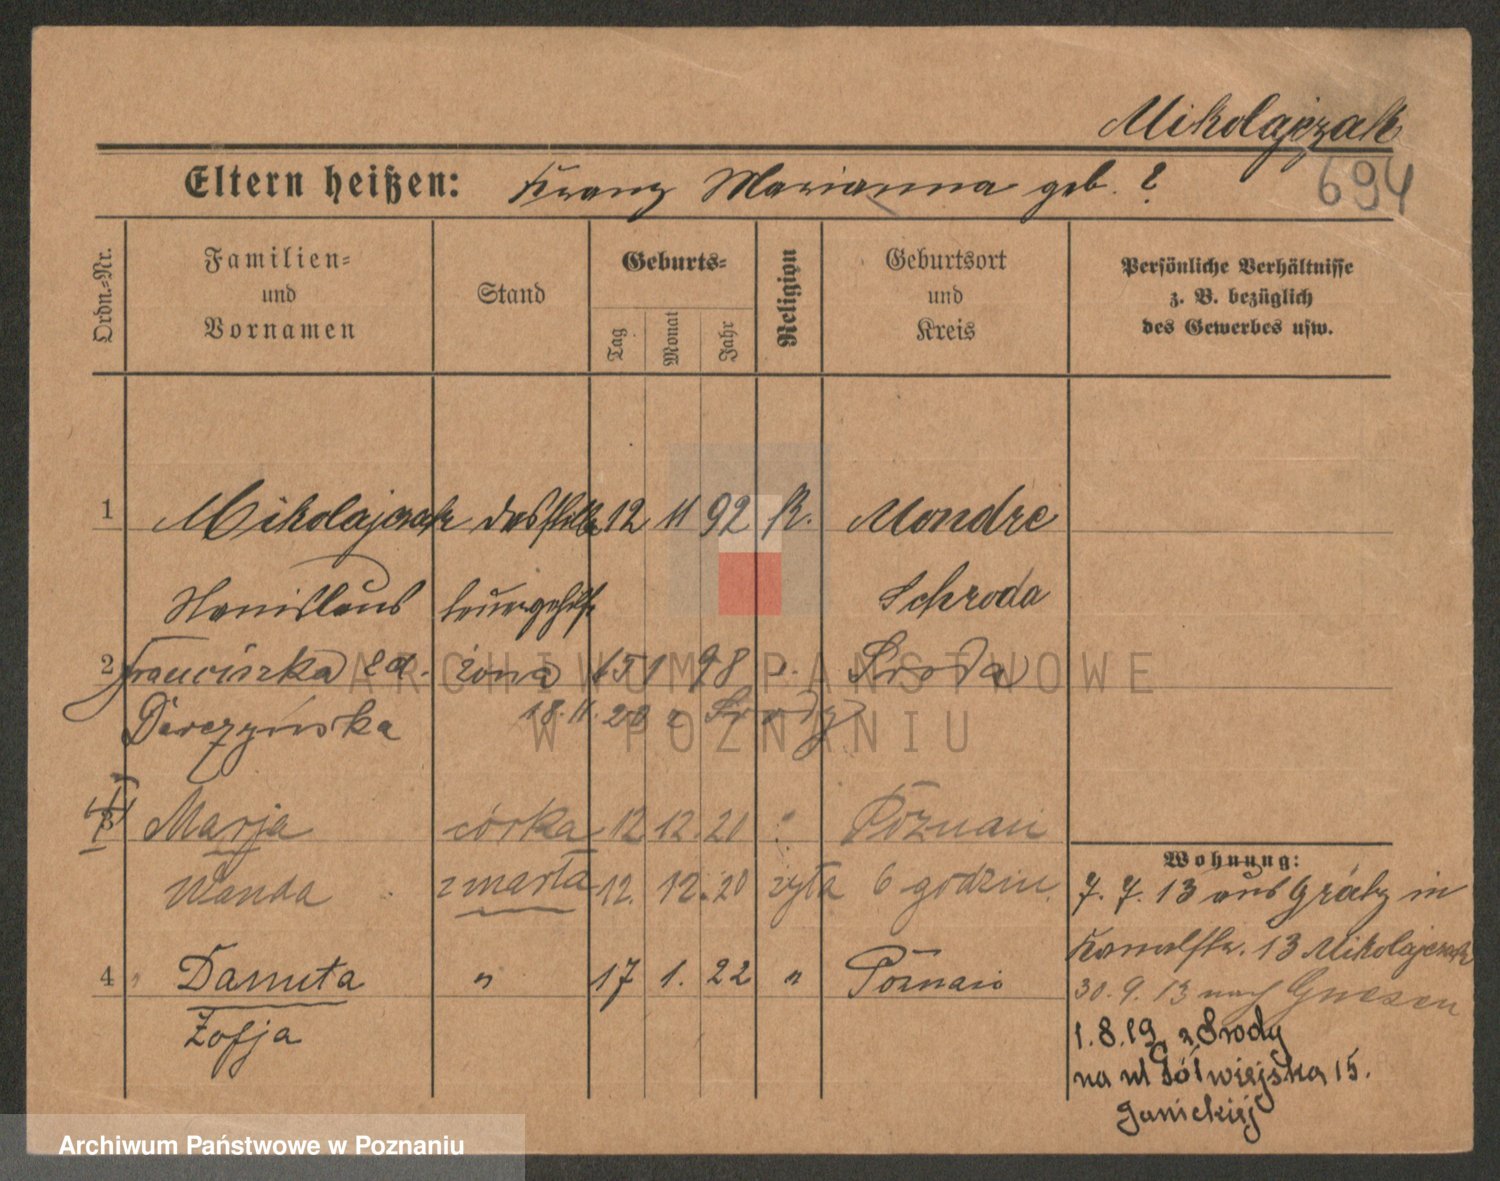 Mikolajczak
694
Eltern heißen: Franz Marianna geb. ?
Ordn.-Nr.
Familien-
und
Vornamen
Stand
Geburts-
Tag
Monat
Jahr
Religion
Geburtsort
und
Kreis
Persönliche Verhältnisse
z. B. bezüglich
des Gewerbes usw.
1 Mikolajczak 12 11 92 K. Mondre
Stanislaus Schroda
2 Franciszka żona 15 1 98 Środa
Derczyńska 18.11.20 z Środy
3 Marja córka 12 12. 20 Poznań
Wanda zmarła 12. 12. 20 żyła 6 godzin.
4 Danuta " 17 1. 22 " Poznań
Zofja
Wohnung:
7. 7. 13 aus Grätz in
Kanalstr. 13 Mikolajczak
30. 9. 13 nach Gnesen
1.8.19 z Środy
na ul Półwiejska 15.
Janickiej
ARCHIWUM PAŃSTWOWE
W POZNANIU
Archiwum Państwowe w Poznaniu